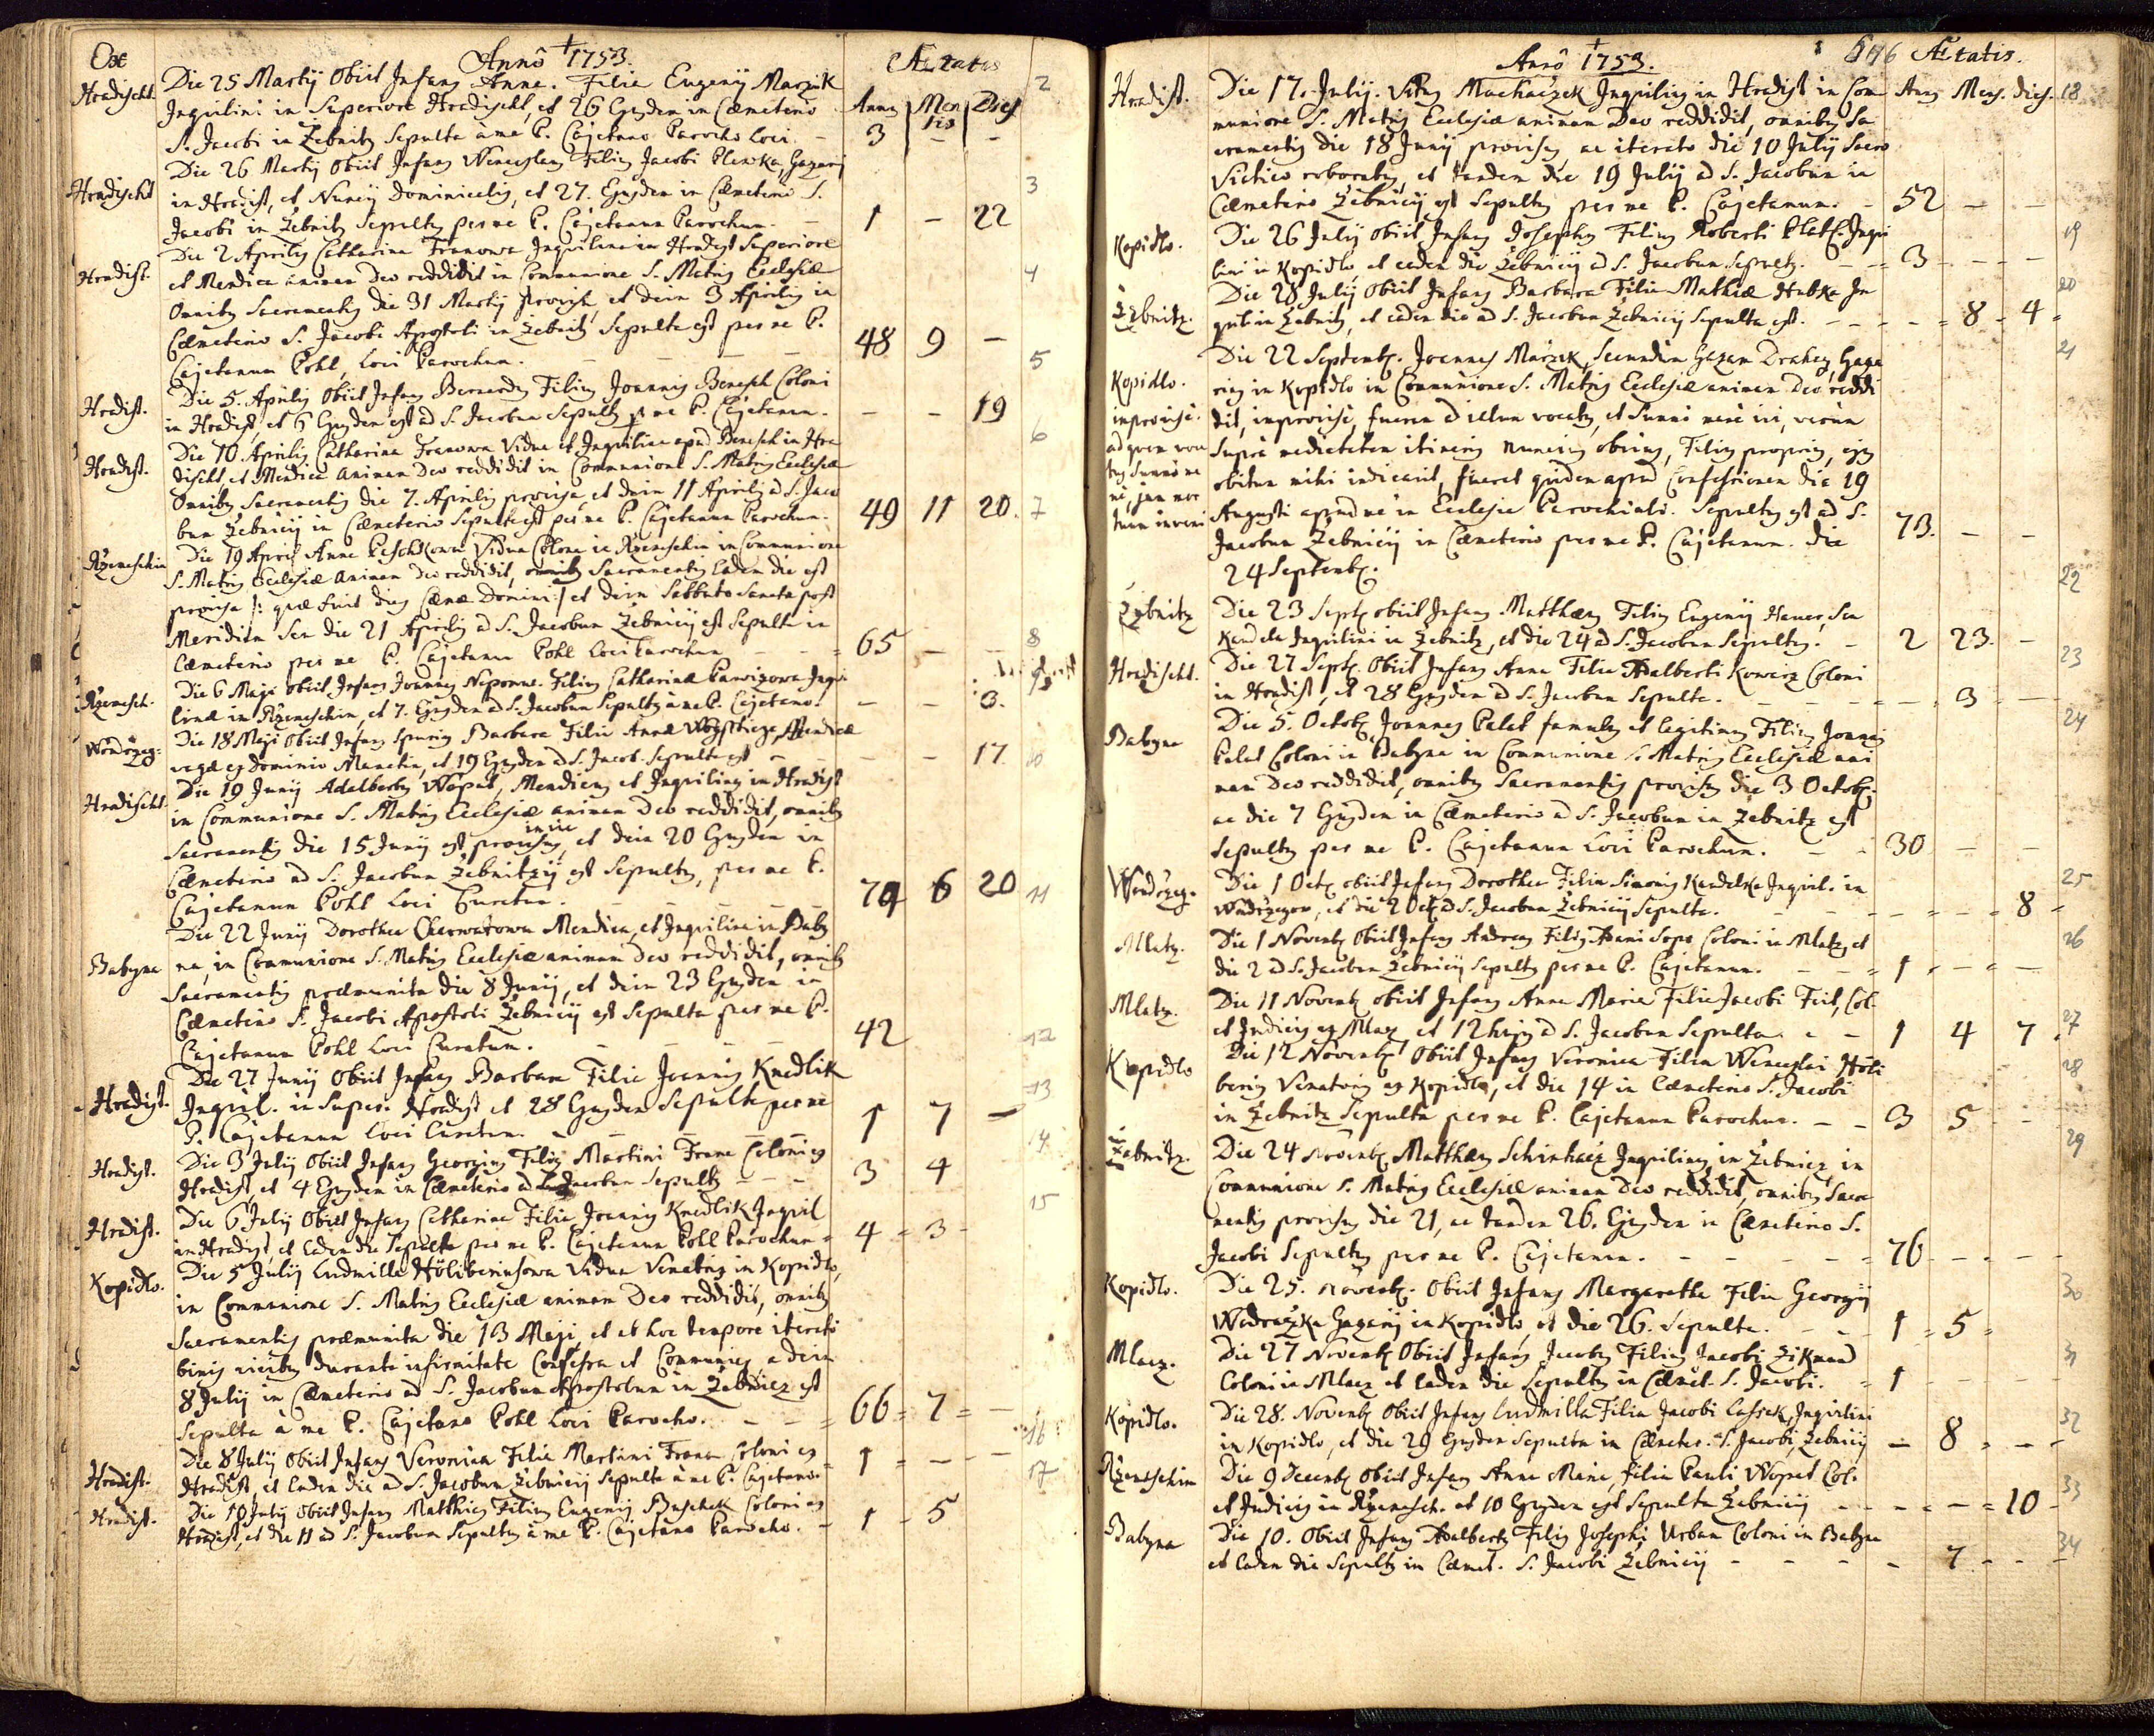 Ex Anno 1753. Ætatis
Hradischt. Die 25 Martij Obiit Infans Anna. Filia Eugenij Marzik 2
Inquilini in Superiore Hradischt, et 26 Ejusdem in Cæmeterio Anni Mensis Dies
S. Jacobi in Žebnitz Sepulta a me P. Cajetano Parocho Loci. 3 - -
Die 26 Martij Obiit Infans Wenceslaus Filius Jacobi Plewka, Gazarij
Hradischt in Hradist, et Nuncij Dominicalis, et 27. Ejusdem in Cæmeterio S. 3
Jacobi in Žebnitz Sepultus per me P. Cajetanum Parochum. 1 - 22
Die 2 Aprilis Catharina Franowa Inquilina in Hradist Superiore
Hradist. et Mendica animam Deo reddidit in Communione S. Matris Ecclesiæ 4
Omnibus Sacramentis die 31 Martij provisa, et dein 3 Aprilis in
Cæmeterio S. Jacobi Apostoli in Žebnitz Sepulta est per me P.
Cajetanum Pohl, Loci Parochum. 48 9 -
Die 5. Aprilis Obiit Infans Bernardus Filius Joannis Benesch Coloni 5
Hradist. in Hradist, et 6 Ejusdem est ad S. Jacobum Sepultus per me P. Cajetanum. - - 19
Die 10 Aprilis Catharina Franowa Vidua et Inquilina apud Benesch in Hra 6
Hradist. discht, et Mendica animam Deo reddidit in Communione S. Matris Ecclesiæ
Omnibus Sacramentis die 7. Aprilis provisa, et dein 11 Aprilis ad S. Jaco
bum Žebnicij in Cæmeterio Sepulta est per me P. Cajetanum Parochum. 49 11 20. 7
Die 19 April Anna Peschkowa Vidua Colona in Rzemeschin in Communione
Rzemeschin S. Matris Ecclesiæ animam Deo reddidit, omnibus Sacramentis Eadem die est
provisa /: quæ fuit dies Cænæ Domini :/ et dein Sabbato Sancto post
Meridiem Seu die 21 Aprilis ad S. Jacobum Žebnicij est Sepulta in
Cæmeterio per me P. Cajetanum Pohl Loci Parochum 65 - - 8
Die 6 Maji Obiit Infans Joannes Nepomu. Filius Catharinæ Inqui
Rzemesch. linæ in Rzemeschin, et 7. Ejusdem ad S. Jacobum Sepultus à me P. Cajetano. - - 3.
Die 18 Maji Obiit Infans Spuria Barbara Filia Annæ Mendicæ
vagæ ex Dominio Manetin, et 19 Ejusdem ad S. Jacob. Sepulta est - - 17 10
Die 19 Junij Adalbertus Wopat, Mendicus et Inquilinus in Hradist
Hradischt. in Communione S. Matris Ecclesiæ animam Deo reddidit, omnibus
Sacramentis die 15 Junij est provisus, et dein 20 Ejusdem in
Cæmeterio ad S. Jacobum Žebnitzij est Sepultus, per me P.
Cajetanum Pohl Loci Curatum. 79 6 20 11
Die 22 Junij Dorothea Charwatowa Mendica, et Inquilina in Baby
Babyna na, in Communione S. Matris Ecclesiæ animam Deo reddidit, omnibus
Sacramentis præmunita die 8 Junij, et dein 23 Ejusdem in
Cæmeterio S. Jacobi Apostoli Žebnicij est Sepulta per me P.
Cajetanum Pohl Loci Curatum. 42 12
Die 27 Junij Obiit Infans Barbara Filia Joannis Knedlik
Hradist. Inquil. in Super. Hradist et 28 Ejusdem Sepulta per me 13
P. Cajetanum Loci Curatum. 1 7 -
Die 3 Julij Obiit Infans Georgius Filius Martini Frana Coloni ex 14
Hradist. Hradist, et 4 Ejusdem in Cæmeterio ad Jacobum Sepultus 3 4
Die 6 Julij Obiit Infans Catharina Filia Joannis Knedlik Inquil 15
Hradist. in Hradist, et Eadem die Sepulta per me P. Cajetanum Pohl Parochum 4 - 3 -
Die 5 Julij Ludmilla Höliberiusowa Vidua Venatris in Kopidlo,
Kopidlo. in Communione S. Matris Ecclesiæ animam Deo reddidit, omnibus
Sacramentis præmunita die 13 Maji, et ab hoc tempore iterato
binis vicibus durante infirmitate Confessa et Communicata, ac dein
8 Julij in Cæmeterio ad S. Jacobum Apostolum in Žebnicz est
Sepulta à me P. Cajetano Pohl Loci Parocho. 66 - 7 - - 16
Die 8 Julij Obiit Infans Veronica Filia Martini Frana Coloni ex
Hradist. Hradist, et Eadem die ad S. Jacobum Žebnicij Sepulta à me P. Cajetano. 1 - - 17
Die 10 Julij Obiit Infans Matthias Filius Eugenij Buschek Coloni ex
Hradist. Hradist, et die 11 ad S. Jacobum Sepultus à me P. Cajetano Parocho. 1 - 5
Anno 1753. 546 Ætatis.
Hradist. Die 17. Julij. Vitus Machaczek Inquilinus in Hradist in Com Anni Mens. dies. 18
munione S. Matris Ecclesiæ animam Deo reddidit, omnibus Sa
cramentis die 18 Junij provisus, ac iterato die 10 Julij Sacro
Viatico roboratus, et tandem die 19 Julij ad S. Jacobum in
Cæmeterio Žebnicij est Sepultus per me P. Cajetanum. 52 - -
Kopidlo. Die 26 Julij Obiit Infans Josephus Filius Roberti Inqui 19
lini in Kopidlo, et eadem die Žebnicij ad S. Jacobum Sepultus. 3 - -
Die 28 Julij Obiit Infans Barbara Filia Mathiæ Hubka In 20
Žebnitz. quil. in Žebnitz, et eadem die ad S. Jacobum Žebnicij Sepulta est. - 8 - 4
Die 22 Septembr. Joannes Marzik, Secundum Gazam Gaza 21
Kopidlo. rius in Kopidlo in Communione S. Matris Ecclesiæ animam Deo reddi
improvise. dit, improvise, fueram ad illum vocatus, et Summo mane ivi, verum
ad quem voca Supra medietatem itineris nuncius obvius, Filius proprius, ejus
tus Summo ma obitum mihi indicavit, fuerat quidem apud Confessionem die 19
ne, jam mor Augusti apud me in Ecclesia Parochiali. Sepultus est ad S.
tuum inveni Jacobum Žebnicij in Cæmeterio per me P. Cajetanum. die 73. - -
24 Septembr.
Žebnitz Die 23 Sept. obiit Infans Matthæus Filius Eugenij Hauer, Seu 22
Kandela Inquilini in Žebnitz, et die 24 ad S. Jacobum Sepultus. 2 23. -
Hradischt. Die 27 Sept. Obiit Infans Anna Filia Adalberti Kowarz Coloni 23
in Hradist, et 28 Ejusdem ad S. Jacobum Sepulta. - 3 -
Babyna Die 5. Octob. Joannes Palat famulus et legitimus Filius Joannis 24
Palat Coloni in Babyna in Communione S. Matris Ecclesiæ ani
mam Deo reddidit, omnibus Sacramentis provisus die 3 Octob.
ac die 7 Ejusdem in Cæmeterio ad S. Jacobum in Žebnitz est
Sepultus per me P. Cajetanum Loci Parochum. 30 - -
Die 1 Oct. obiit Infans Dorothea Filia Simonis Kandelka Inquil. in 25
et die 2 Oct. ad S. Jacobum Žebnicij Sepulta. - - 8
Mlatz. Die 1 Novemb. Obiit Infans Andreas Filius Adami Sopr Coloni in Mlatz, et 26
die 2 ad S. Jacobum Žebnicij Sepultus per me P. Cajetanum. 1 - -
Mlatz. Die 11 Novemb. obiit Infans Anna Maria Filia Jacobi Col.
et Judicis ex Mlaz, et 12 hujus ad S. Jacobum Sepulta 1 4 7 27
Kopidlo Die 12 Novemb. Obiit Infans Veronica Filia Wenceslai Höli 28
berius Venatoris ex Kopidlo, et die 14 in Cæmeterio S. Jacobi
in Žebnitz Sepulta per me P. Cajetanum Parochum. 3 5
Žebnitz. Die 24 Novemb. Matthæus Schinhaiz Inquilinus in Žebnicz, in 29
Communione S. Matris Ecclesiæ animam Deo reddidit, omnibus Sacra
mentis provisus die 21, ac tandem 26. Ejusdem in Cæmeterio S.
Jacobi Sepultus per me P. Cajetanum. 76 - -
Kopidlo. Die 25. Novemb. Obiit Infans Margaretha Filia Georgij 30
Wodraczka Gazarij in Kopidlo, et die 26. Sepulta. 1 - 5
Mlacz. Die 27 Novemb. Obiit Infans Jacobus Filius Jacobi Zikmund 31
Coloni in Mlacz et Eadem die Sepultus in Cæmet. S. Jacobi. 1
Kopidlo. Die 28. Novemb. Obiit Infans Ludmilla Filia Jacobi Inquilini 32
in Kopidlo, et die 29 Ejusdem Sepulta in Cæmeter. S. Jacobi Žebnicij - 8 -
Rzemeschin Die 9 Decemb. Obiit Infans Anna Maria, Filia Pauli Wopat Col.
et Judicis in Rzemesch. et 10 Ejusdem est Sepulta Žebnicij - - 10 33
Babyna Die 10. Obiit Infans Adalbertus Filius Josephi Urban Coloni in Babyna
et Eadem die Sepultus in Cæmet. S. Jacobi Žebnicij - 7 - 34